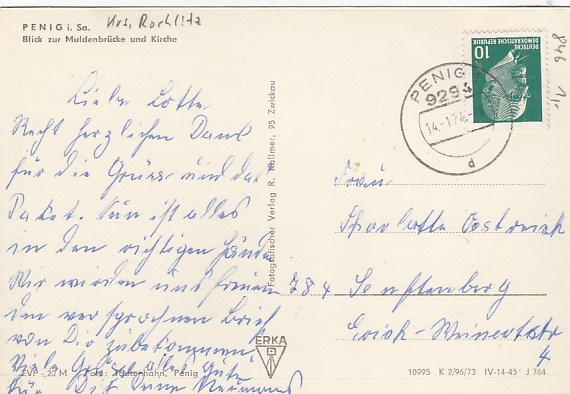 PENIG i. Sa.
Krs. Rochlitz
Blick zur Muldenbrücke und Kirche
846 1,-
DEUTSCHE
DEMOKRATISCHE REPUBLIK
10
PENIG
929
14.-1.74-
d
Liebe Lotte
Recht herzlichen Dank
für die Grüsse und das
Paket. Nun ist alles
in den richtigen Hände
Wir würden uns freuen
den versprochenen Brief
von Dir zubekommen
Viele Gute
für Dich Deine
Frau
Charlotte Oestreich
784 Senftenberg
Erich-Weinertstr
4
Fotografischer Verlag R. Kallmer, 95 Zwickau
ERKA
EVP -,20 M Foto: Penig
10995 K 2/96/73 IV-14-45 J 764